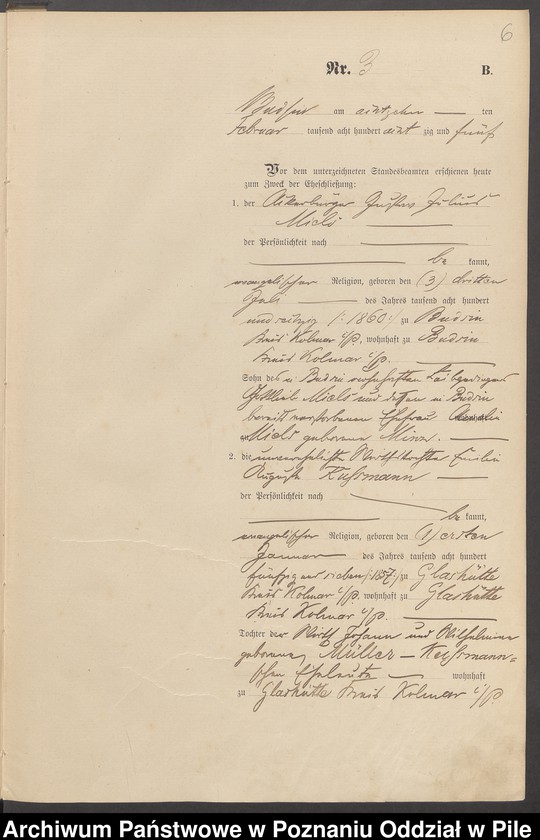 6
Nr. 3 B.
Budsin am achtzehn ten
Februar tausend acht hundert acht zig und fünf
Vor dem unterzeichneten Standesbeamten erschienen heute
zum Zweck der Eheschließung:
1. der Ackerbürger Gustav Julius
Miels
der Persönlichkeit nach
be kannt,
evangelischer Religion, geboren den (3) dritten
Juli des Jahres tausend acht hundert
und sechzig /: 1860 :/ zu Budsin
Kreis Kolmar i/p, wohnhaft zu Budsin
Kreis Kolmar i/p.
Sohn des in Budsin wohnhaften Leibgedingers
Gottlieb Miels und dessen in Budsin
bereits verstorbenen Ehefrau
Miels geborene Minx.
2. die unverehelichte Wirthstochter Emilie
Auguste Kussmann
der Persönlichkeit nach
be kannt,
evangelischer Religion, geboren den (1) ersten
Januar des Jahres tausend acht hundert
fünfzig und sieben /: 1857 :/ zu Glashütte
Kreis Kolmar i/p. wohnhaft zu Glashütte
Kreis Kolmar i/p.
Tochter der Wirth Johann und Wilhelmine
geborene Müller - Kussmann=
schen Eheleute wohnhaft
zu Glashütte Kreis Kolmar i/p
Archiwum Państwowe w Poznaniu Oddział w Pile